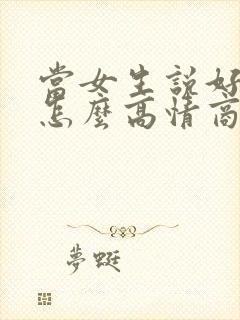 當女生説好
怎麼高情商
夢蜓